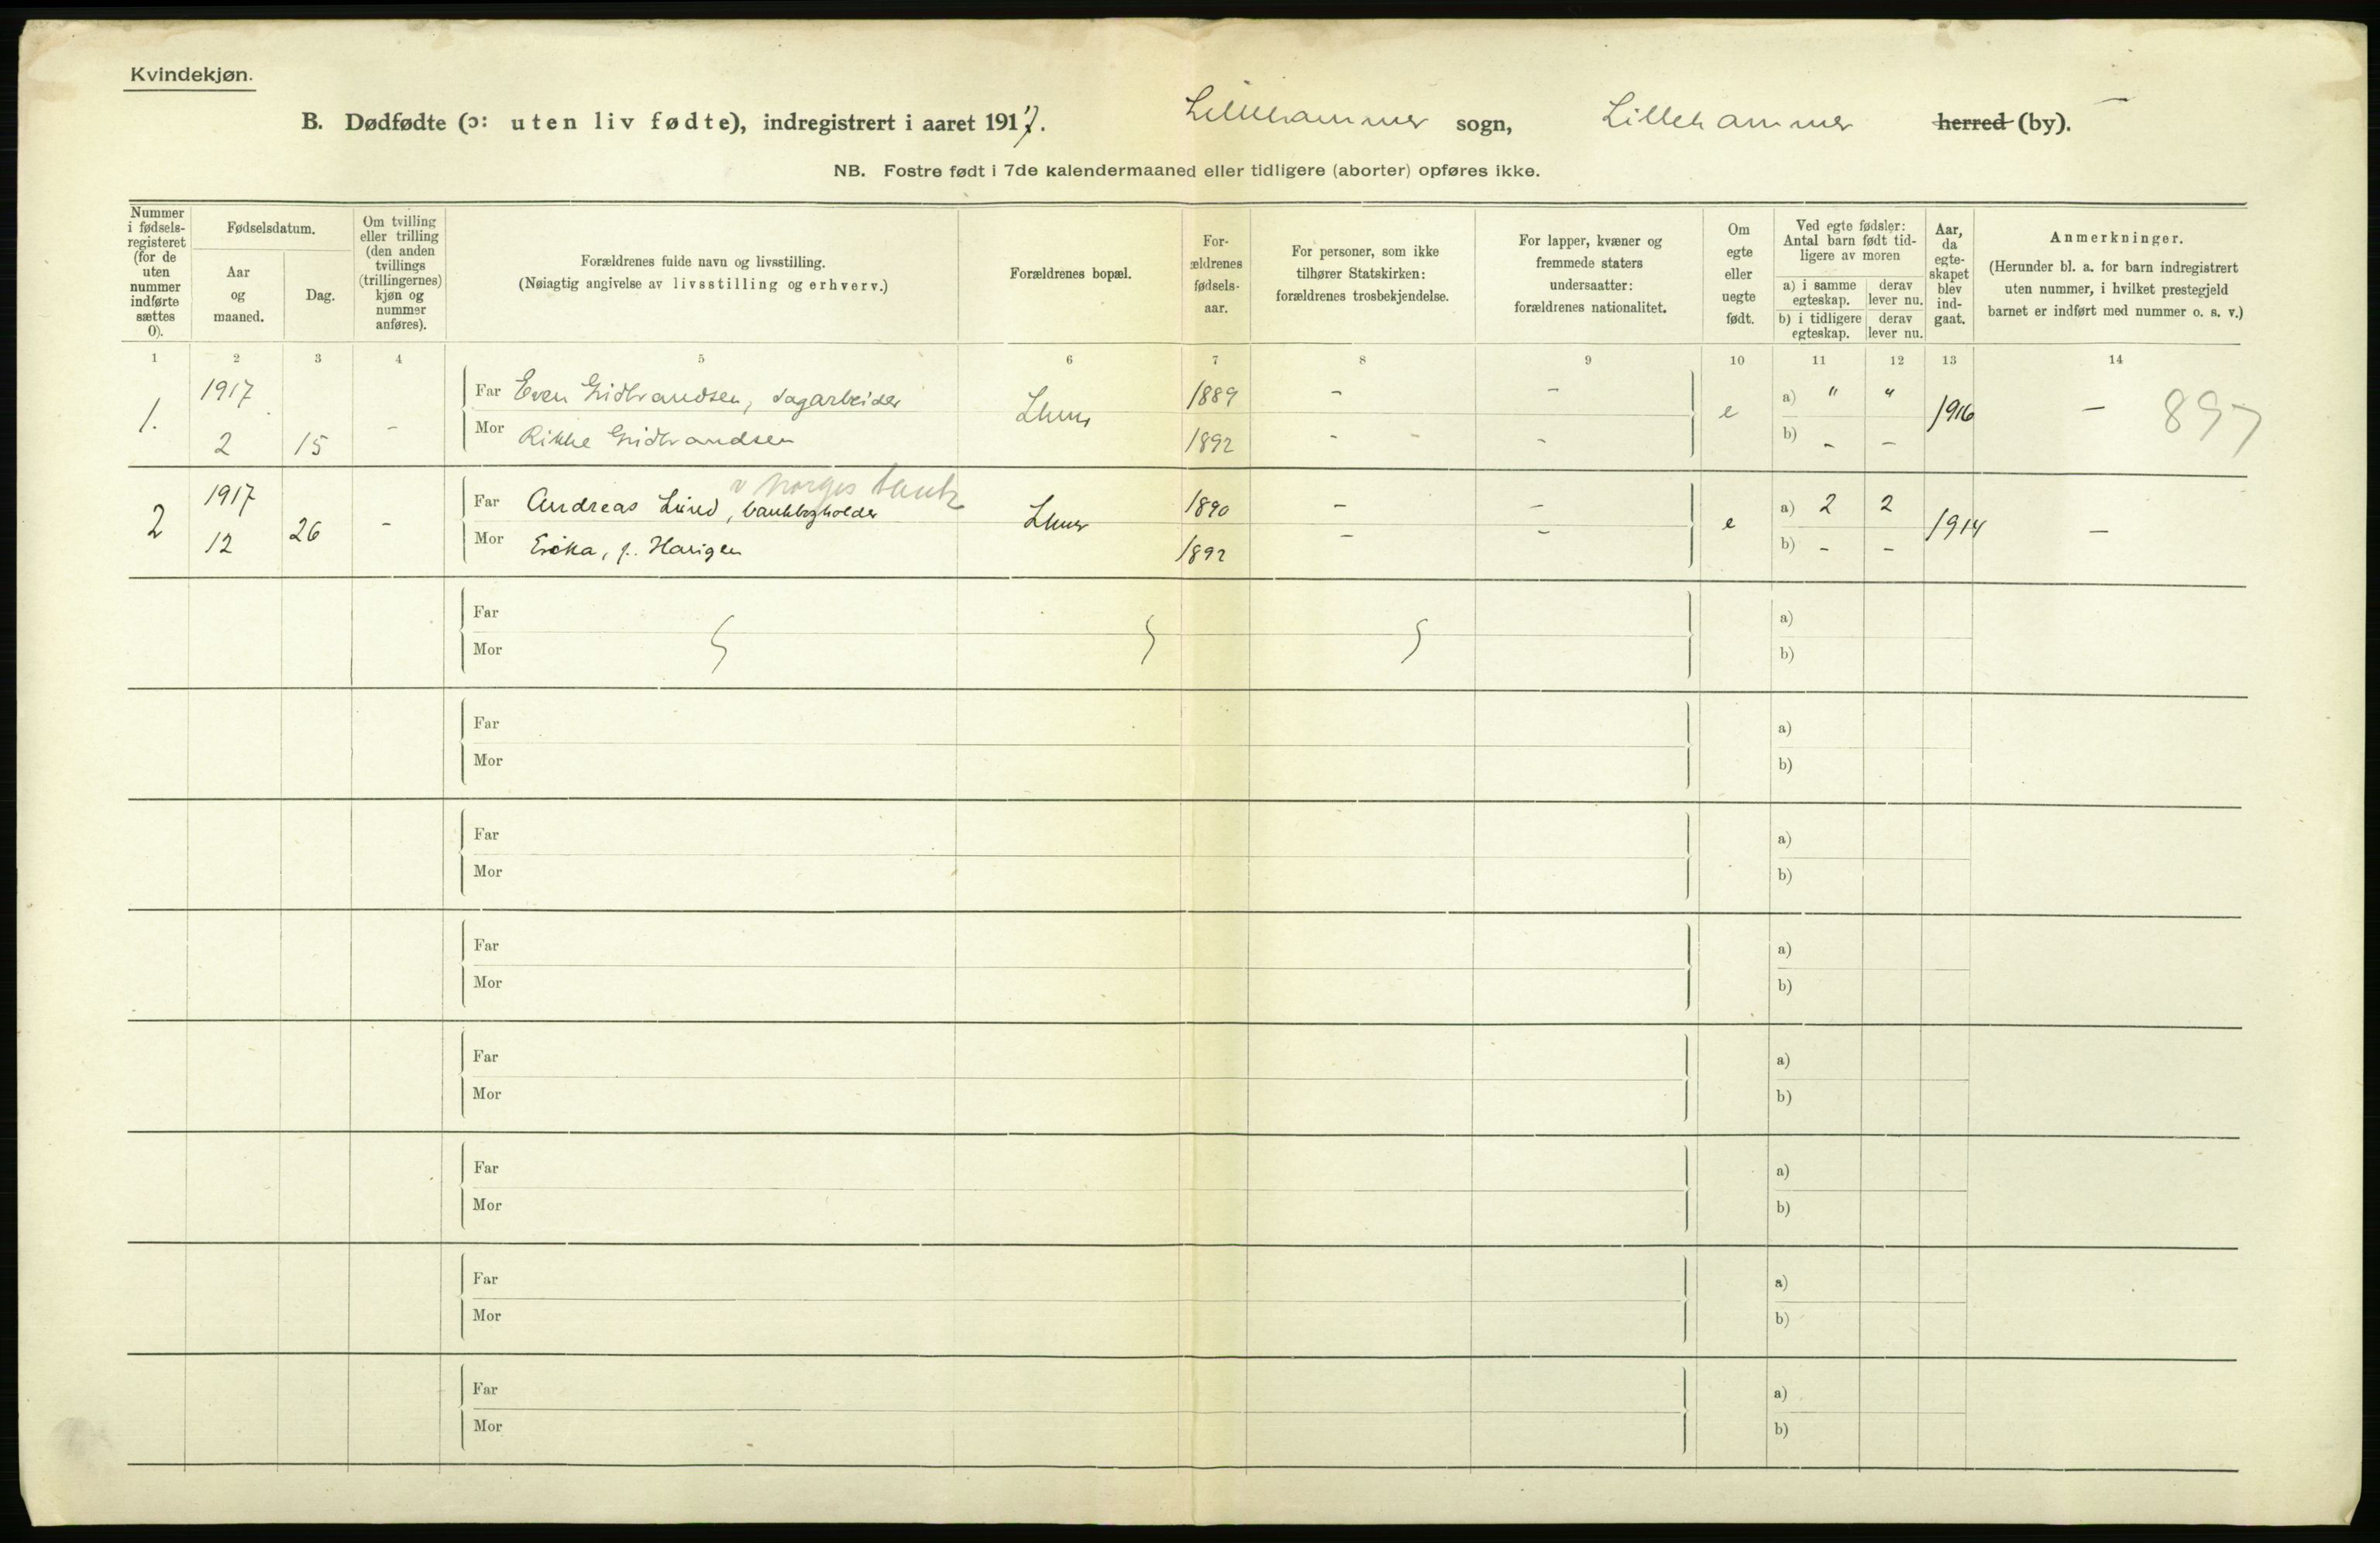 Kvindekjøn.
B. Dødfødte (ɔ: uten liv fødte), indregistrert i aaret 1917. Lillehammer sogn, Lillehammer herred (by).
NB. Fostre født i 7de kalendermaaned eller tidligere (aborter) opføres ikke.
Nummer i fødsels-registeret (for de uten nummer indførte sættes 0).
Fødselsdatum.
Aar og maaned.
Dag.
Om tvilling eller trilling (den anden tvillings (trillingernes) kjøn og nummer anføres).
Forældrenes fulde navn og livsstilling.
(Nøiagtig angivelse av livsstilling og erhverv.)
Forældrenes bopæl.
For-ældrenes fødsels-aar.
For personer, som ikke tilhører Statskirken: forældrenes trosbekjendelse.
For lapper, kvæner og fremmede staters undersaatter: forældrenes nationalitet.
Om egte eller uegte født.
Ved egte fødsler: Antal barn født tid-ligere av moren
a) i samme egteskap.
derav lever nu.
b) i tidligere egteskap.
derav lever nu.
Aar, da egte-skapet blev ind-gaat.
Anmerkninger.
(Herunder bl. a. for barn indregistrert uten nummer, i hvilket prestegjeld barnet er indført med nummer o. s. v.)
1 2 3 4 5 6 7 8 9 10 11 12 13 14
1917 Far Even Gudbrandsen, sagarbeider 1889 - - a) " "
1. - Lhmr e 1916 - 897
2 15 Mor Rikke Gudbrandsen 1892 - - - b) - -
v Norges bank
1917 Far Andreas Lund, bankbogholder 1890 - - a) 2 2
2 26 - Lhmr e 1914 -
12 Mor Erika, f. Harigen 1892 - - b) - -
Far a)
Mor b)
Far a)
Mor b)
Far a)
Mor b)
Far a)
Mor b)
Far a)
Mor b)
Far a)
Mor b)
Far a)
Mor b)
Far a)
Mor b)